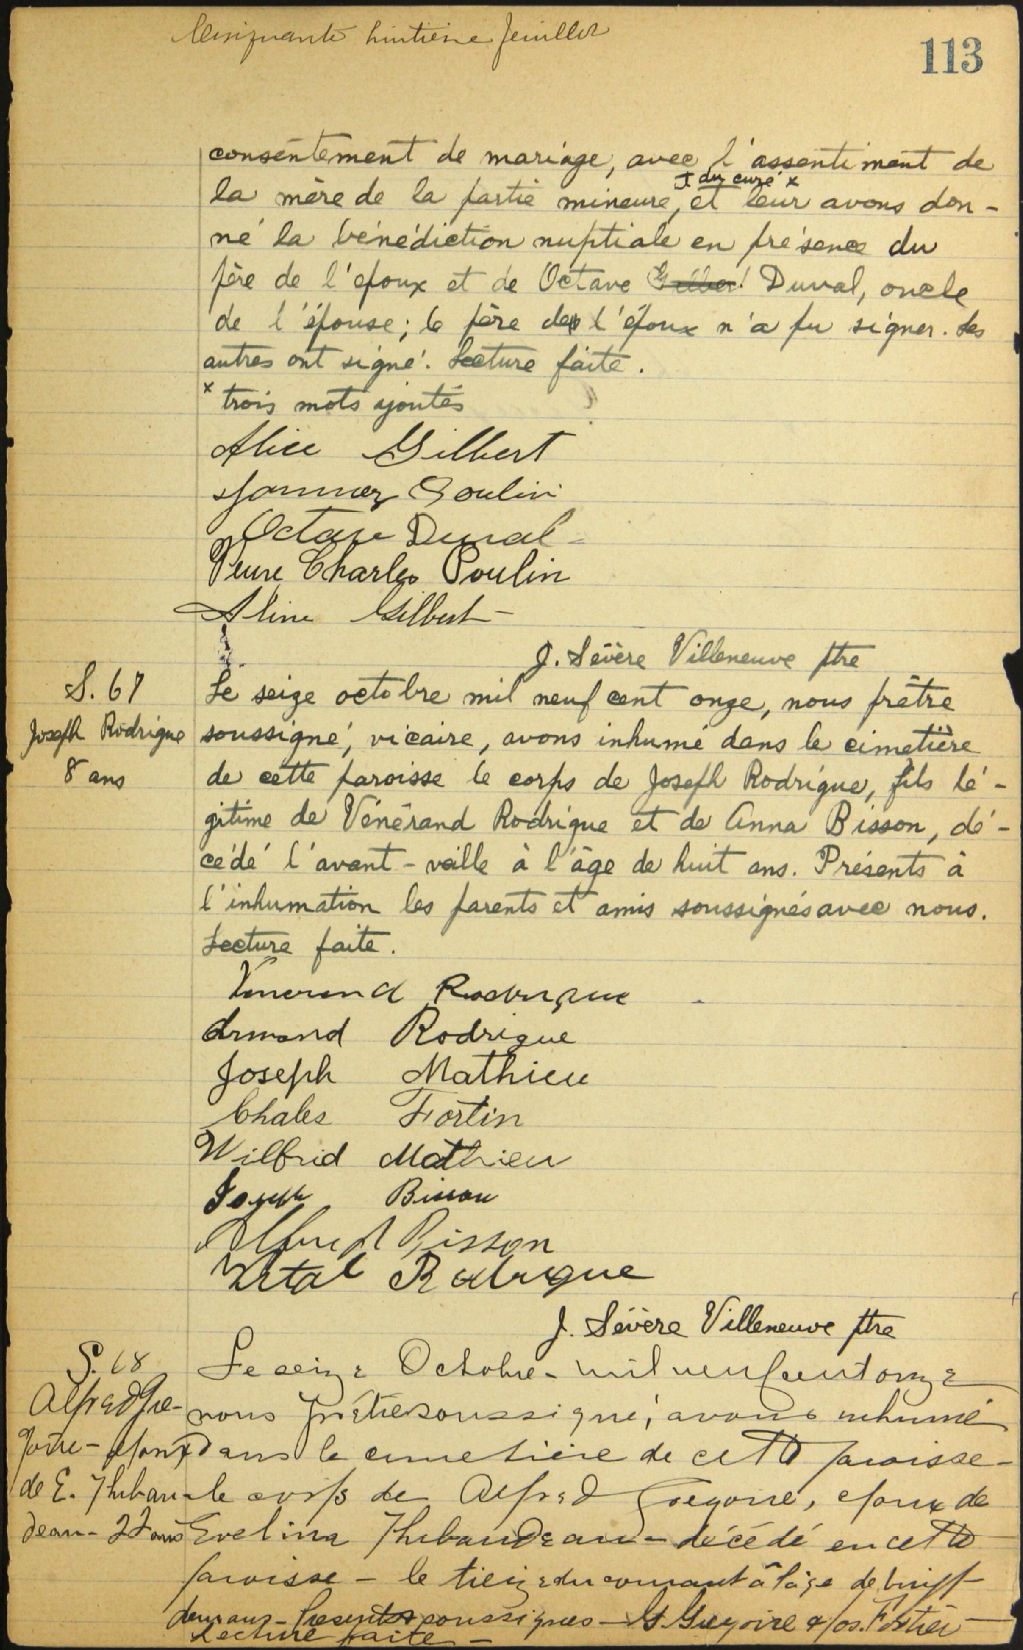 Cinquante huitième feuillet
113
consentement de mariage, avec l'assentiment de
+ du curé x
la mère de la partie mineure, et leur avons don-
né la bénédiction nuptiale en présence du
père de l'époux et de Octave Gilbert Duval, oncle
de l'épouse; le père de l'époux n'a pu signer. Les
autres ont signé. Lecture faite.
x trois mots ajoutés
Alice Gilbert
Poulin
Octave Duval
Veuve Charles Poulin
Aline Gilbert
J. Sévère Villeneuve ptre
S. 67
Joseph Rodrigue
8 ans
Le seize octobre mil neuf cent onze, nous prêtre
soussigné, vicaire, avons inhumé dans le cimetière
de cette paroisse le corps de Joseph Rodrigue, fils lé-
gitime de Vénérand Rodrigue et de Anna Bisson, dé-
cédé l'avant-veille à l'âge de huit ans. Présents à
l'inhumation les parents et amis soussignés avec nous.
Lecture faite.
Venerand Rodrigue
Armand Rodrigue
Joseph Mathieu
Chales Fortin
Wilfrid Mathieu
Joseph Bisson
Alfred Bisson
Vital Rodrigue
J. Sévère Villeneuve ptre
S. 68
Alfred Gré-
goire - époux
de E. Thibau-
deau - 22 ans
Le seize Octobre - mil neuf cent onze
nous prêtre soussigné, avons inhumé
dans le cimetière de cette paroisse -
le corps de Alfred Gregoire, epoux de
Evelina Thibaudeau - décédé en cette
paroisse - le treize du courant à l'âge de vingt
deux ans - Presents soussignés - G. Gregoire & Jos. Fortier -
Lecture faite -